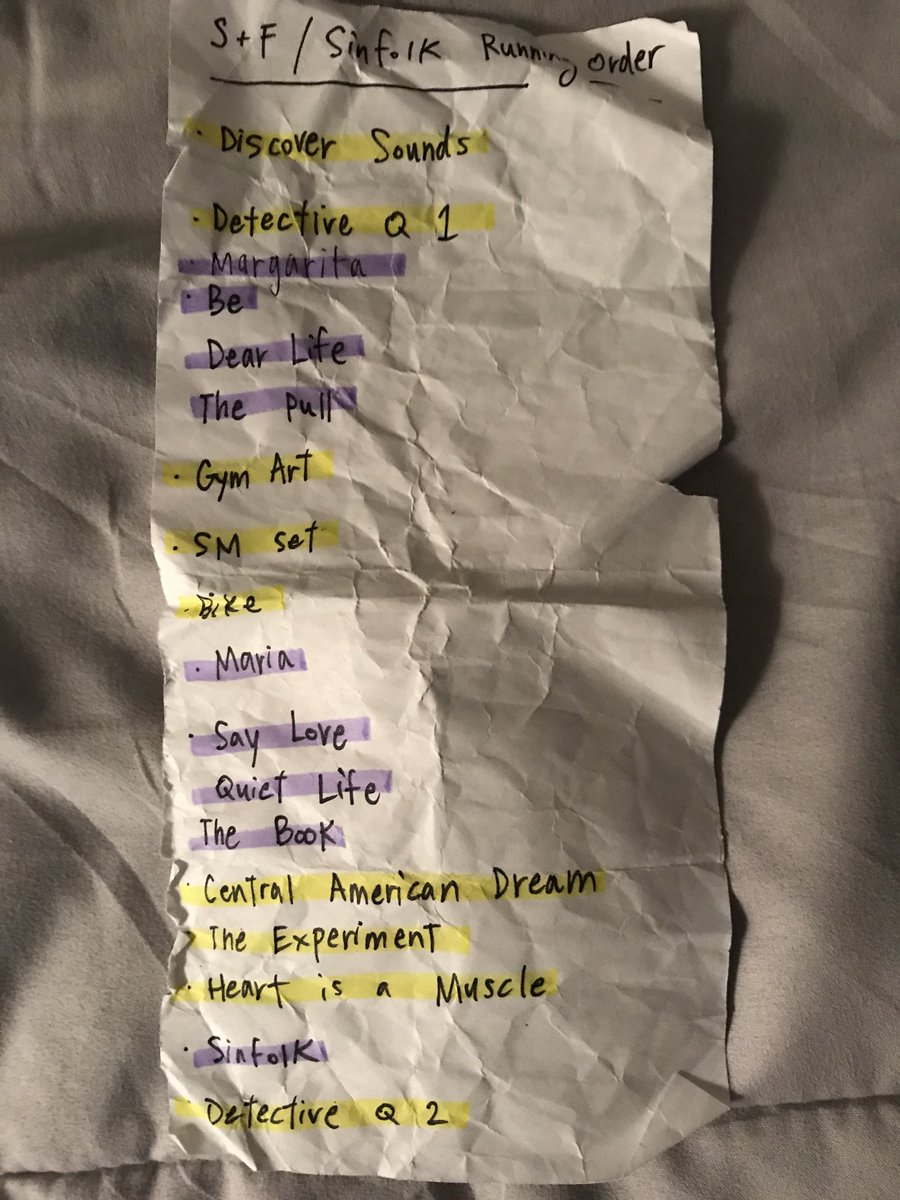 S+F / Sinfolk Running order
· Discover Sounds
· Detective Q 1
· Margarita
· Be
Dear Life
The Pull
· Gym Art
· SM set
· Bike
· Maria
· Say Love
Quiet Life
The Book
· Central American Dream
· The Experiment
· Heart is a Muscle
· Sinfolk
· Detective Q 2